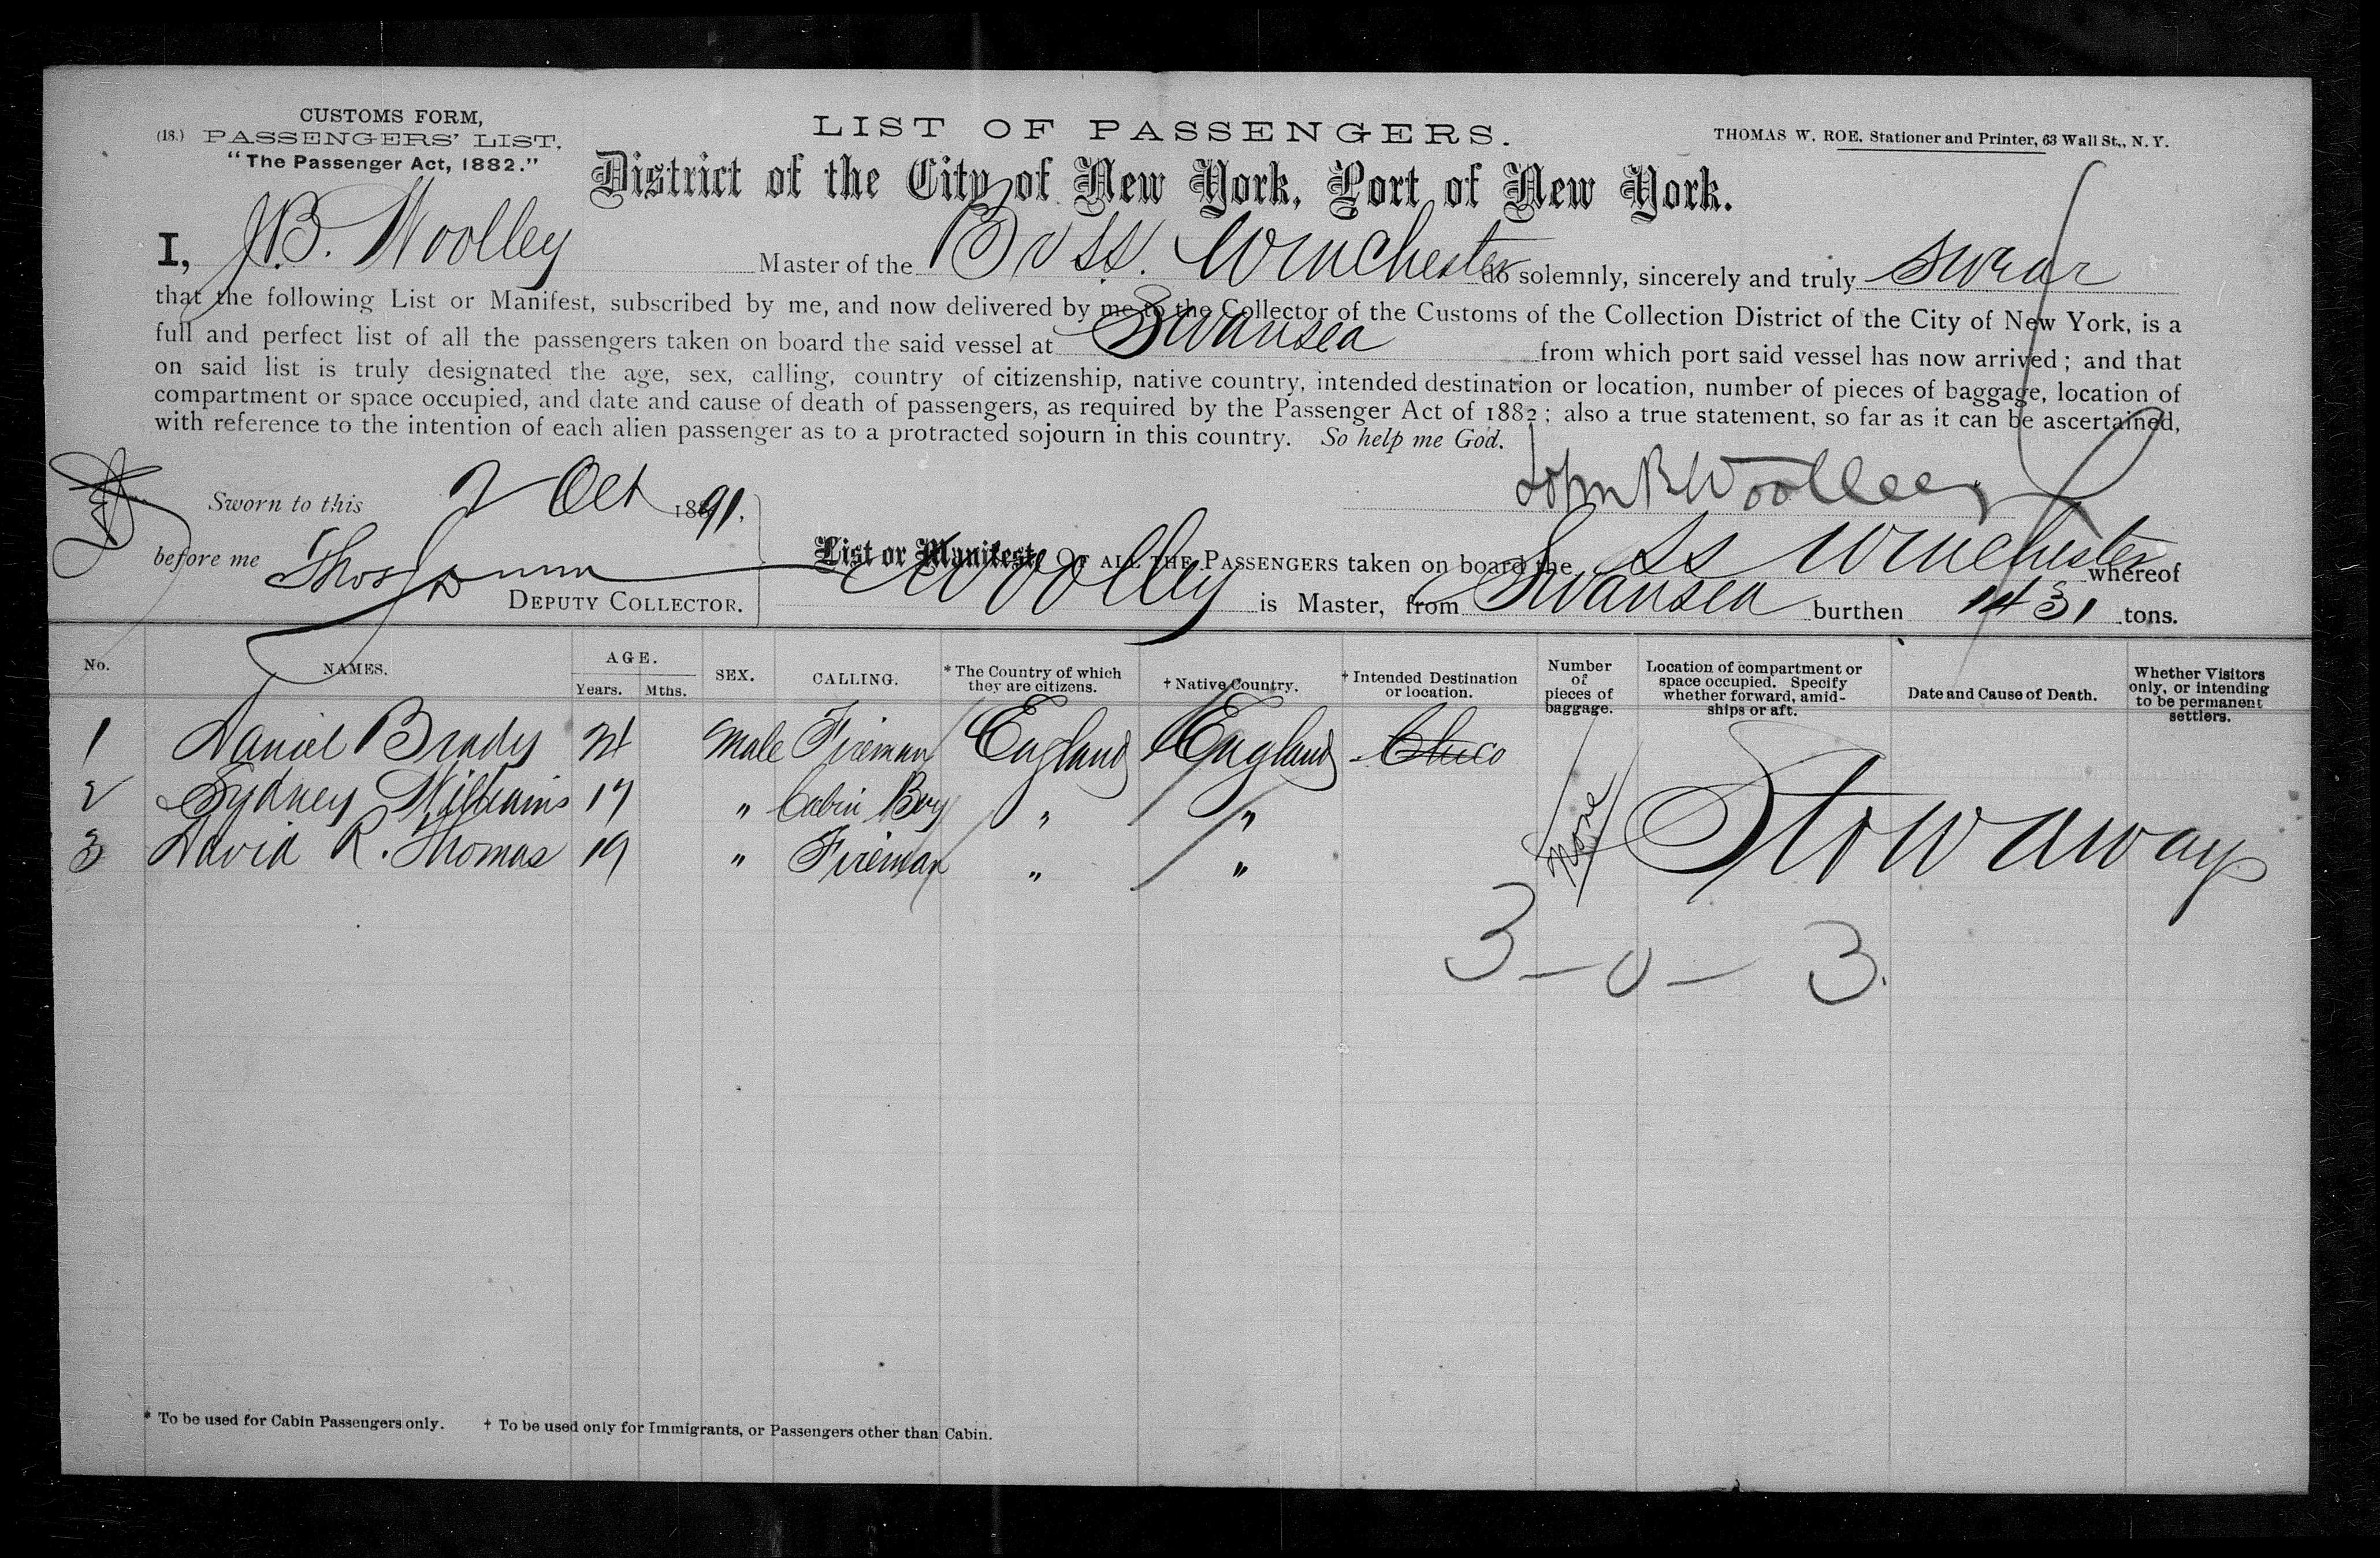 CUSTOMS FORM,
(18.) PASSENGERS' LIST.
"The Passenger Act, 1882."
LIST OF PASSENGERS.
THOMAS W. ROE. Stationer and Printer, 63 Wall St., N. Y.
District of the City of New York, Port of New York.
I, J.B. Woolley Master of the Br SS. Winchester do solemnly, sincerely and truly swear
that the following List or Manifest, subscribed by me, and now delivered by me to the Collector of the Customs of the Collection District of the City of New York, is a
full and perfect list of all the passengers taken on board the said vessel at Swansea from which port said vessel has now arrived; and that
on said list is truly designated the age, sex, calling, country of citizenship, native country, intended destination or location, number of pieces of baggage, location of
compartment or space occupied, and date and cause of death of passengers, as required by the Passenger Act of 1882; also a true statement, so far as it can be ascertained,
with reference to the intention of each alien passenger as to a protracted sojourn in this country. So help me God.
John B Woolley
Sworn to this 2 Oct 1891.
before me Thos
DEPUTY COLLECTOR.
List or Manifest, OF ALL THE PASSENGERS taken on board the SS Winchester whereof
Woolley is Master, from Swansea burthen 1431 tons.
No. NAMES. AGE. Years. Mths. SEX. CALLING. * The Country of which they are citizens. † Native Country. † Intended Destination or location. Number of pieces of baggage. Location of compartment or space occupied. Specify whether forward, amid-ships or aft. Date and Cause of Death. Whether Visitors only, or intending to be permanent settlers.
1 Daniel Brady 24 Male Fireman England England
2 Sydney Williams 17 " Cabin Boy " "
3 David R. Thomas 19 " Fireman " "
None Stowaways
3 - 0 - 3.
* To be used for Cabin Passengers only. † To be used only for Immigrants, or Passengers other than Cabin.